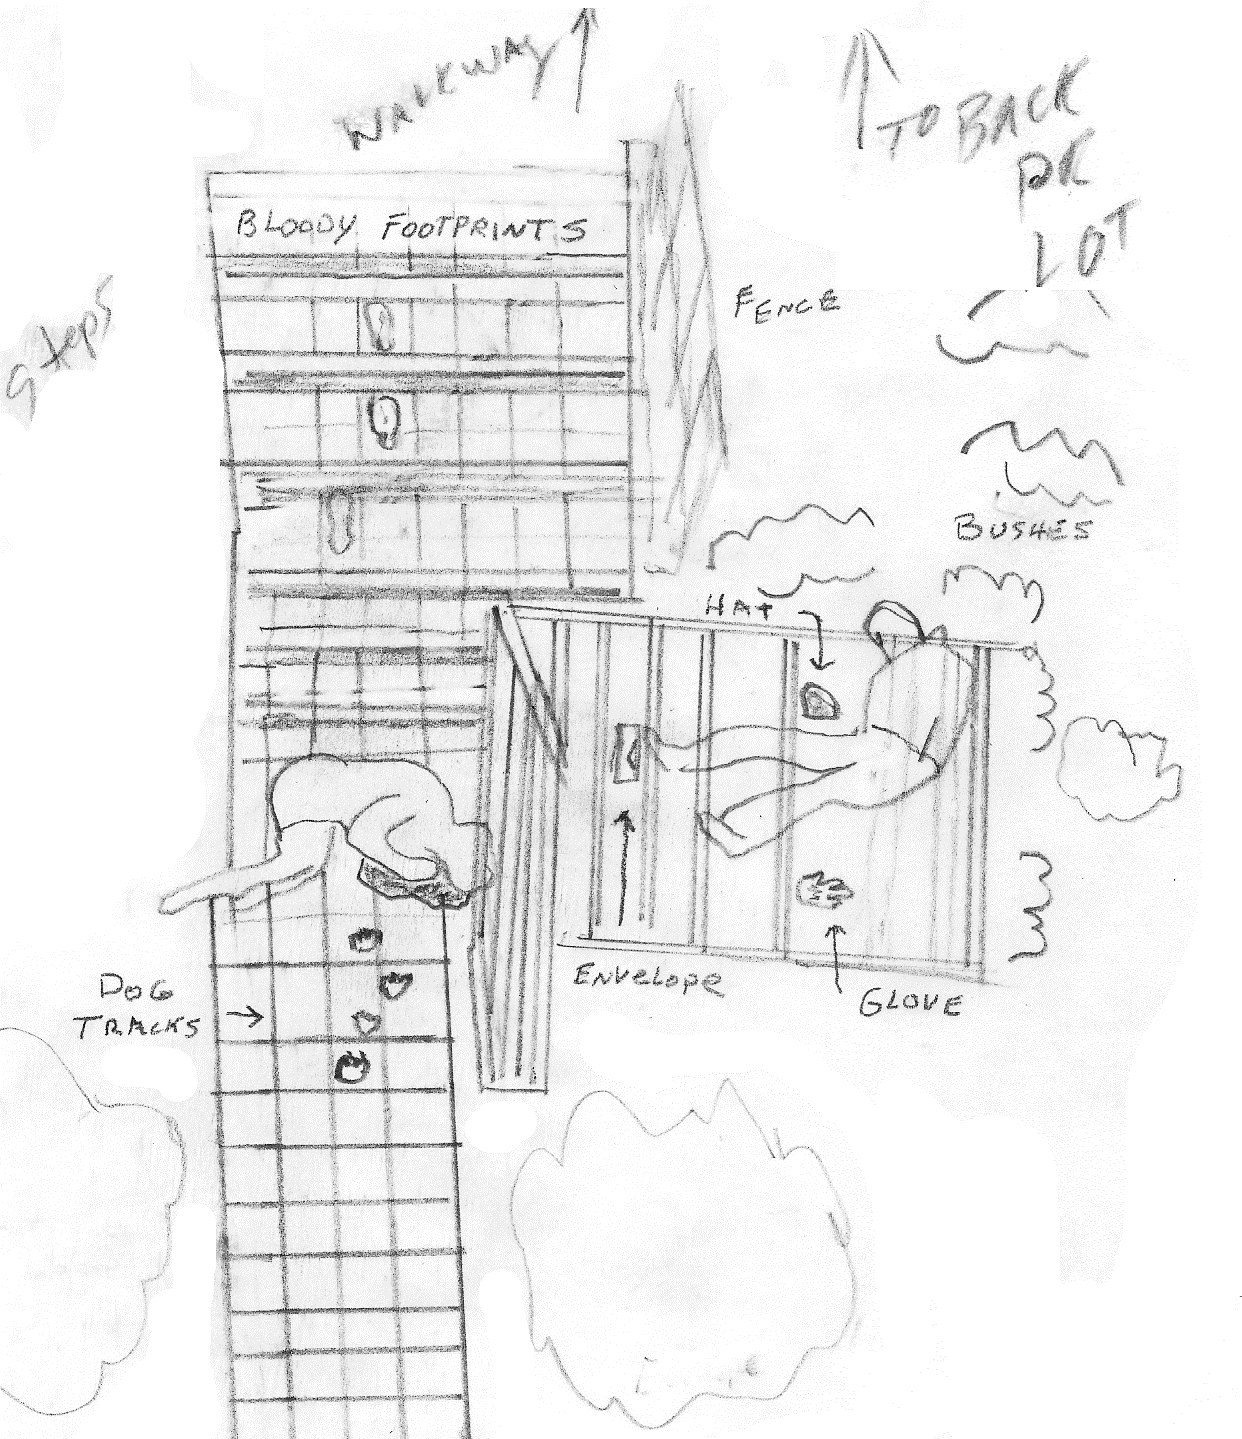 WALKWAY
TO BACK
PK
LOT
BLOODY FOOTPRINTS
FENCE
Steps
BUSHES
HAT
DOG
TRACKS
ENVELOPE
GLOVE